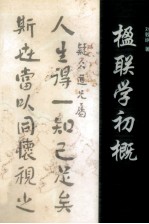 楹联学初概
疑仌道兄屬
人生得一知己足矣
斯世當以同懷視之